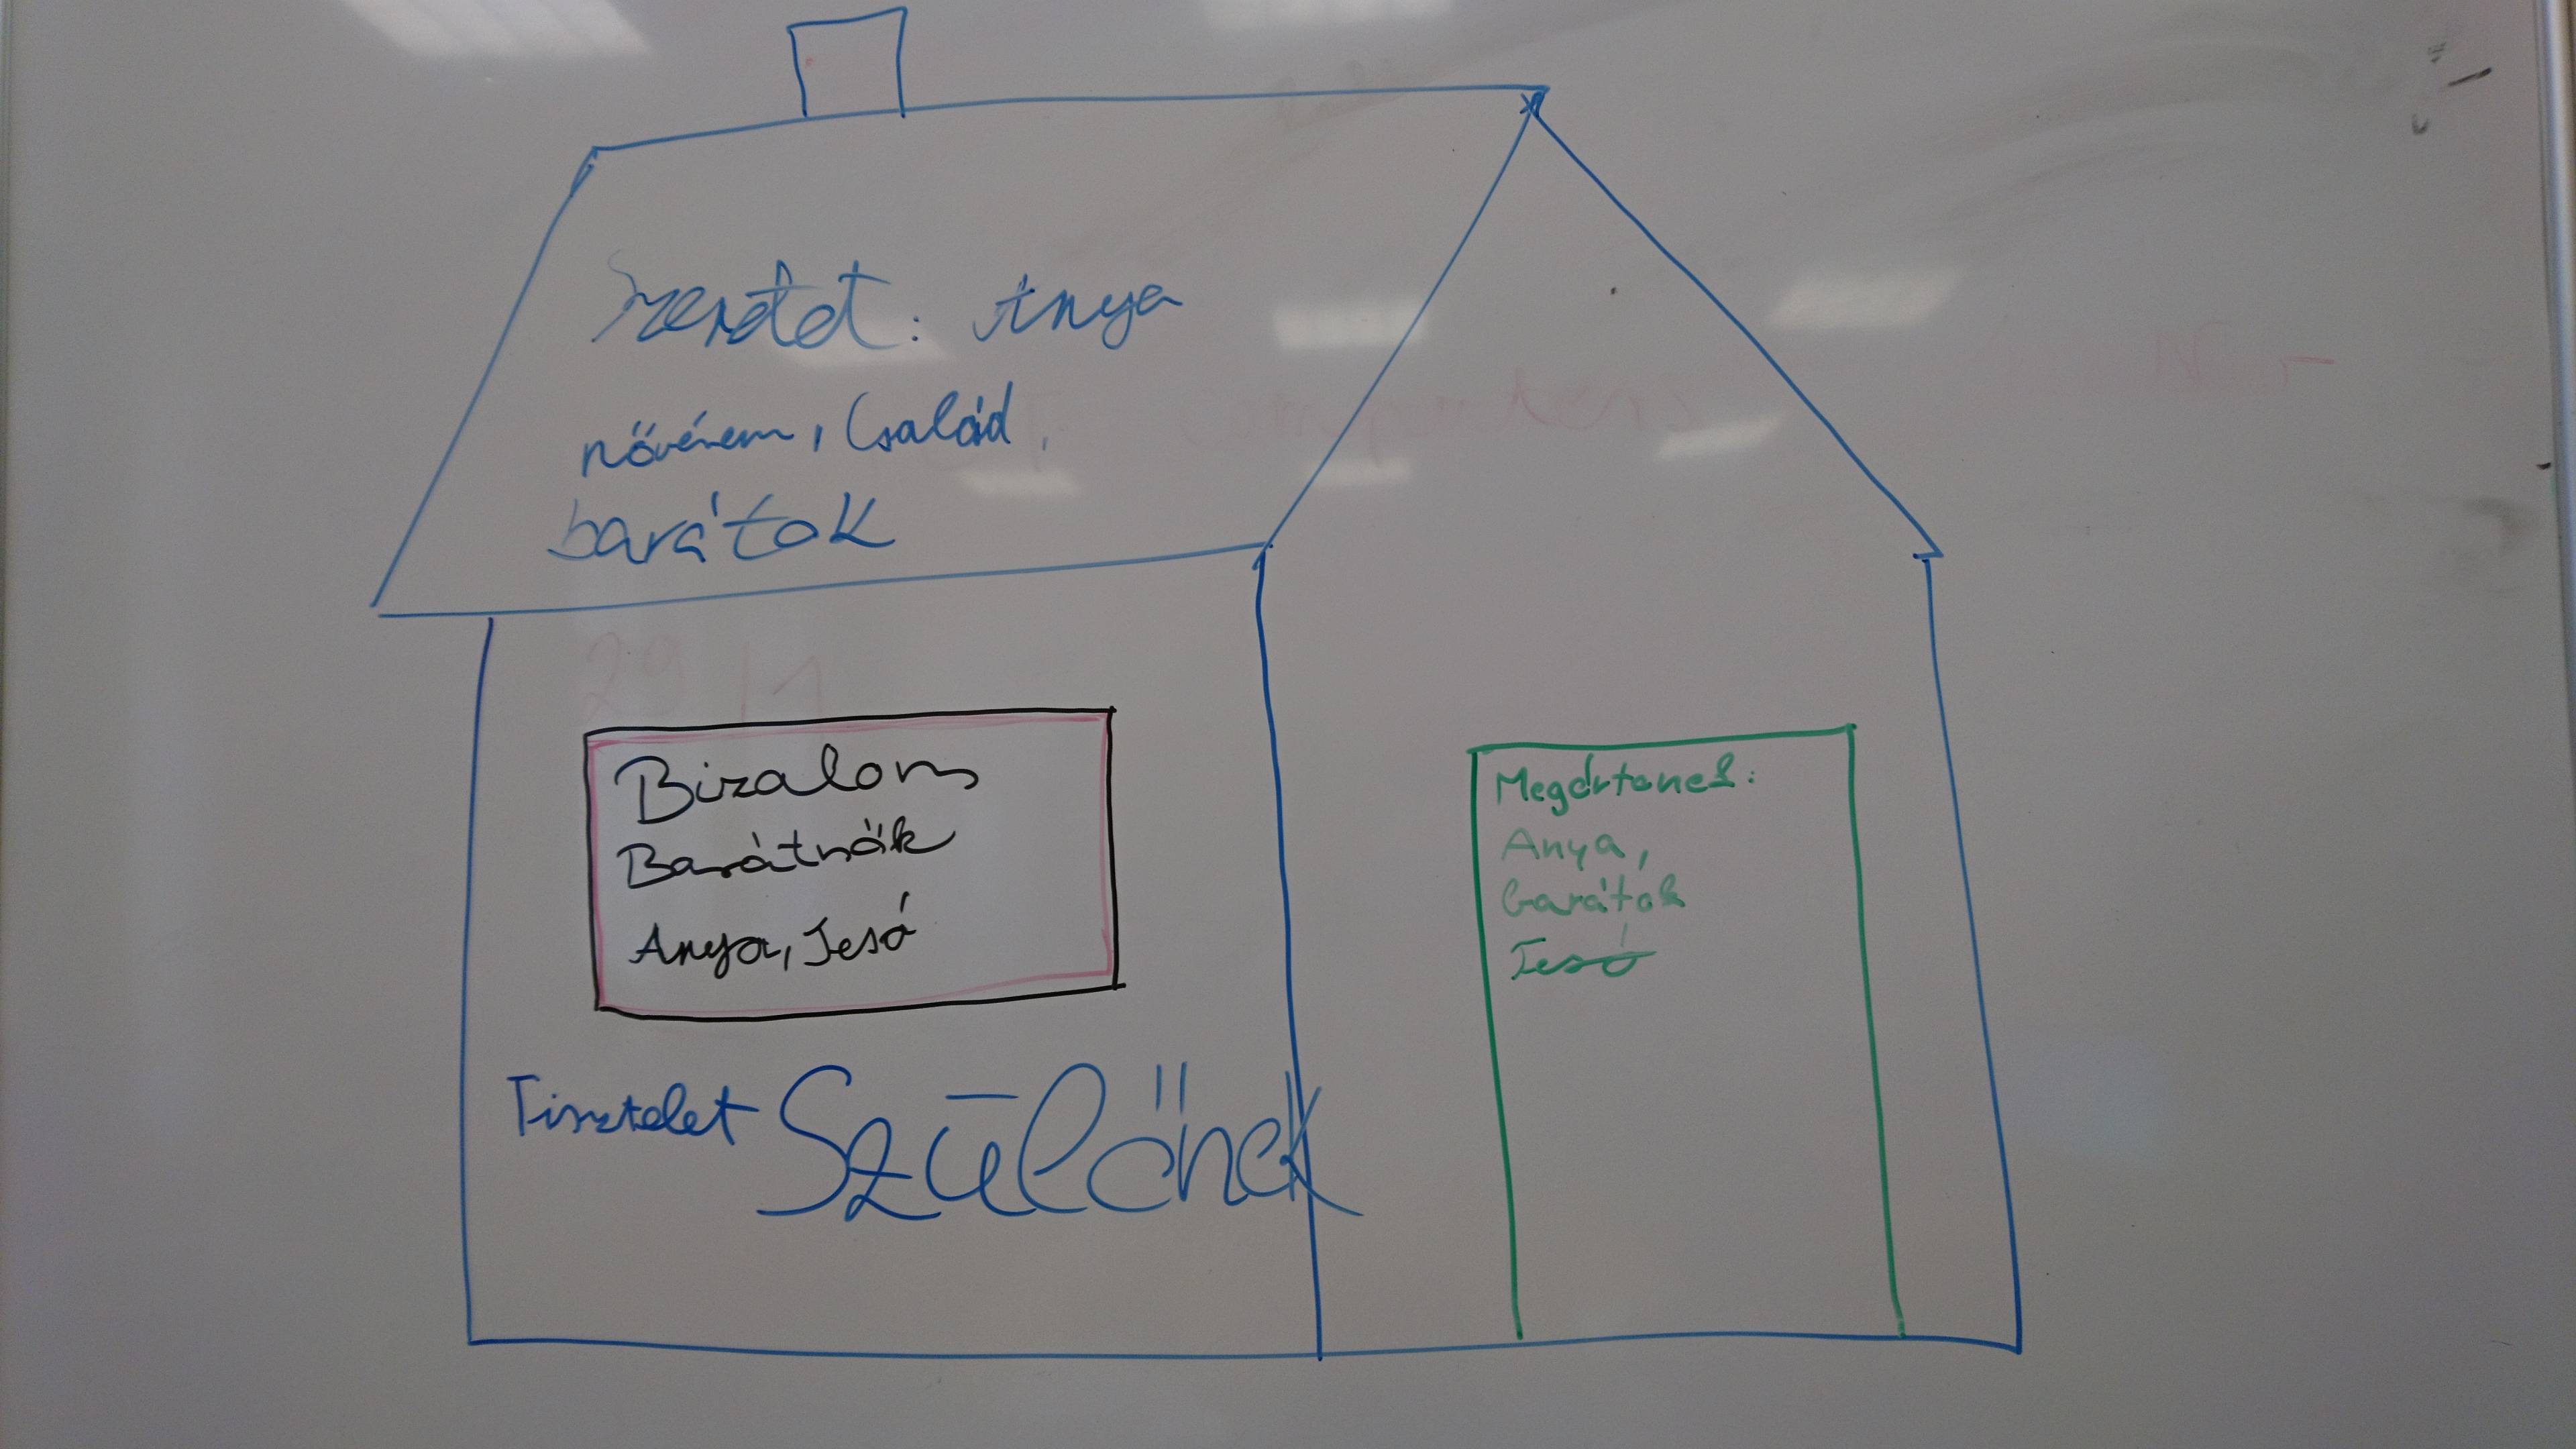 Szeretet: Anya
nővérem, Család,
barátok
Bizalom
Barátnők
Anya, Tesó
Tisztelet Szülőnek
Megértenek:
Anya,
barátok
Tesó